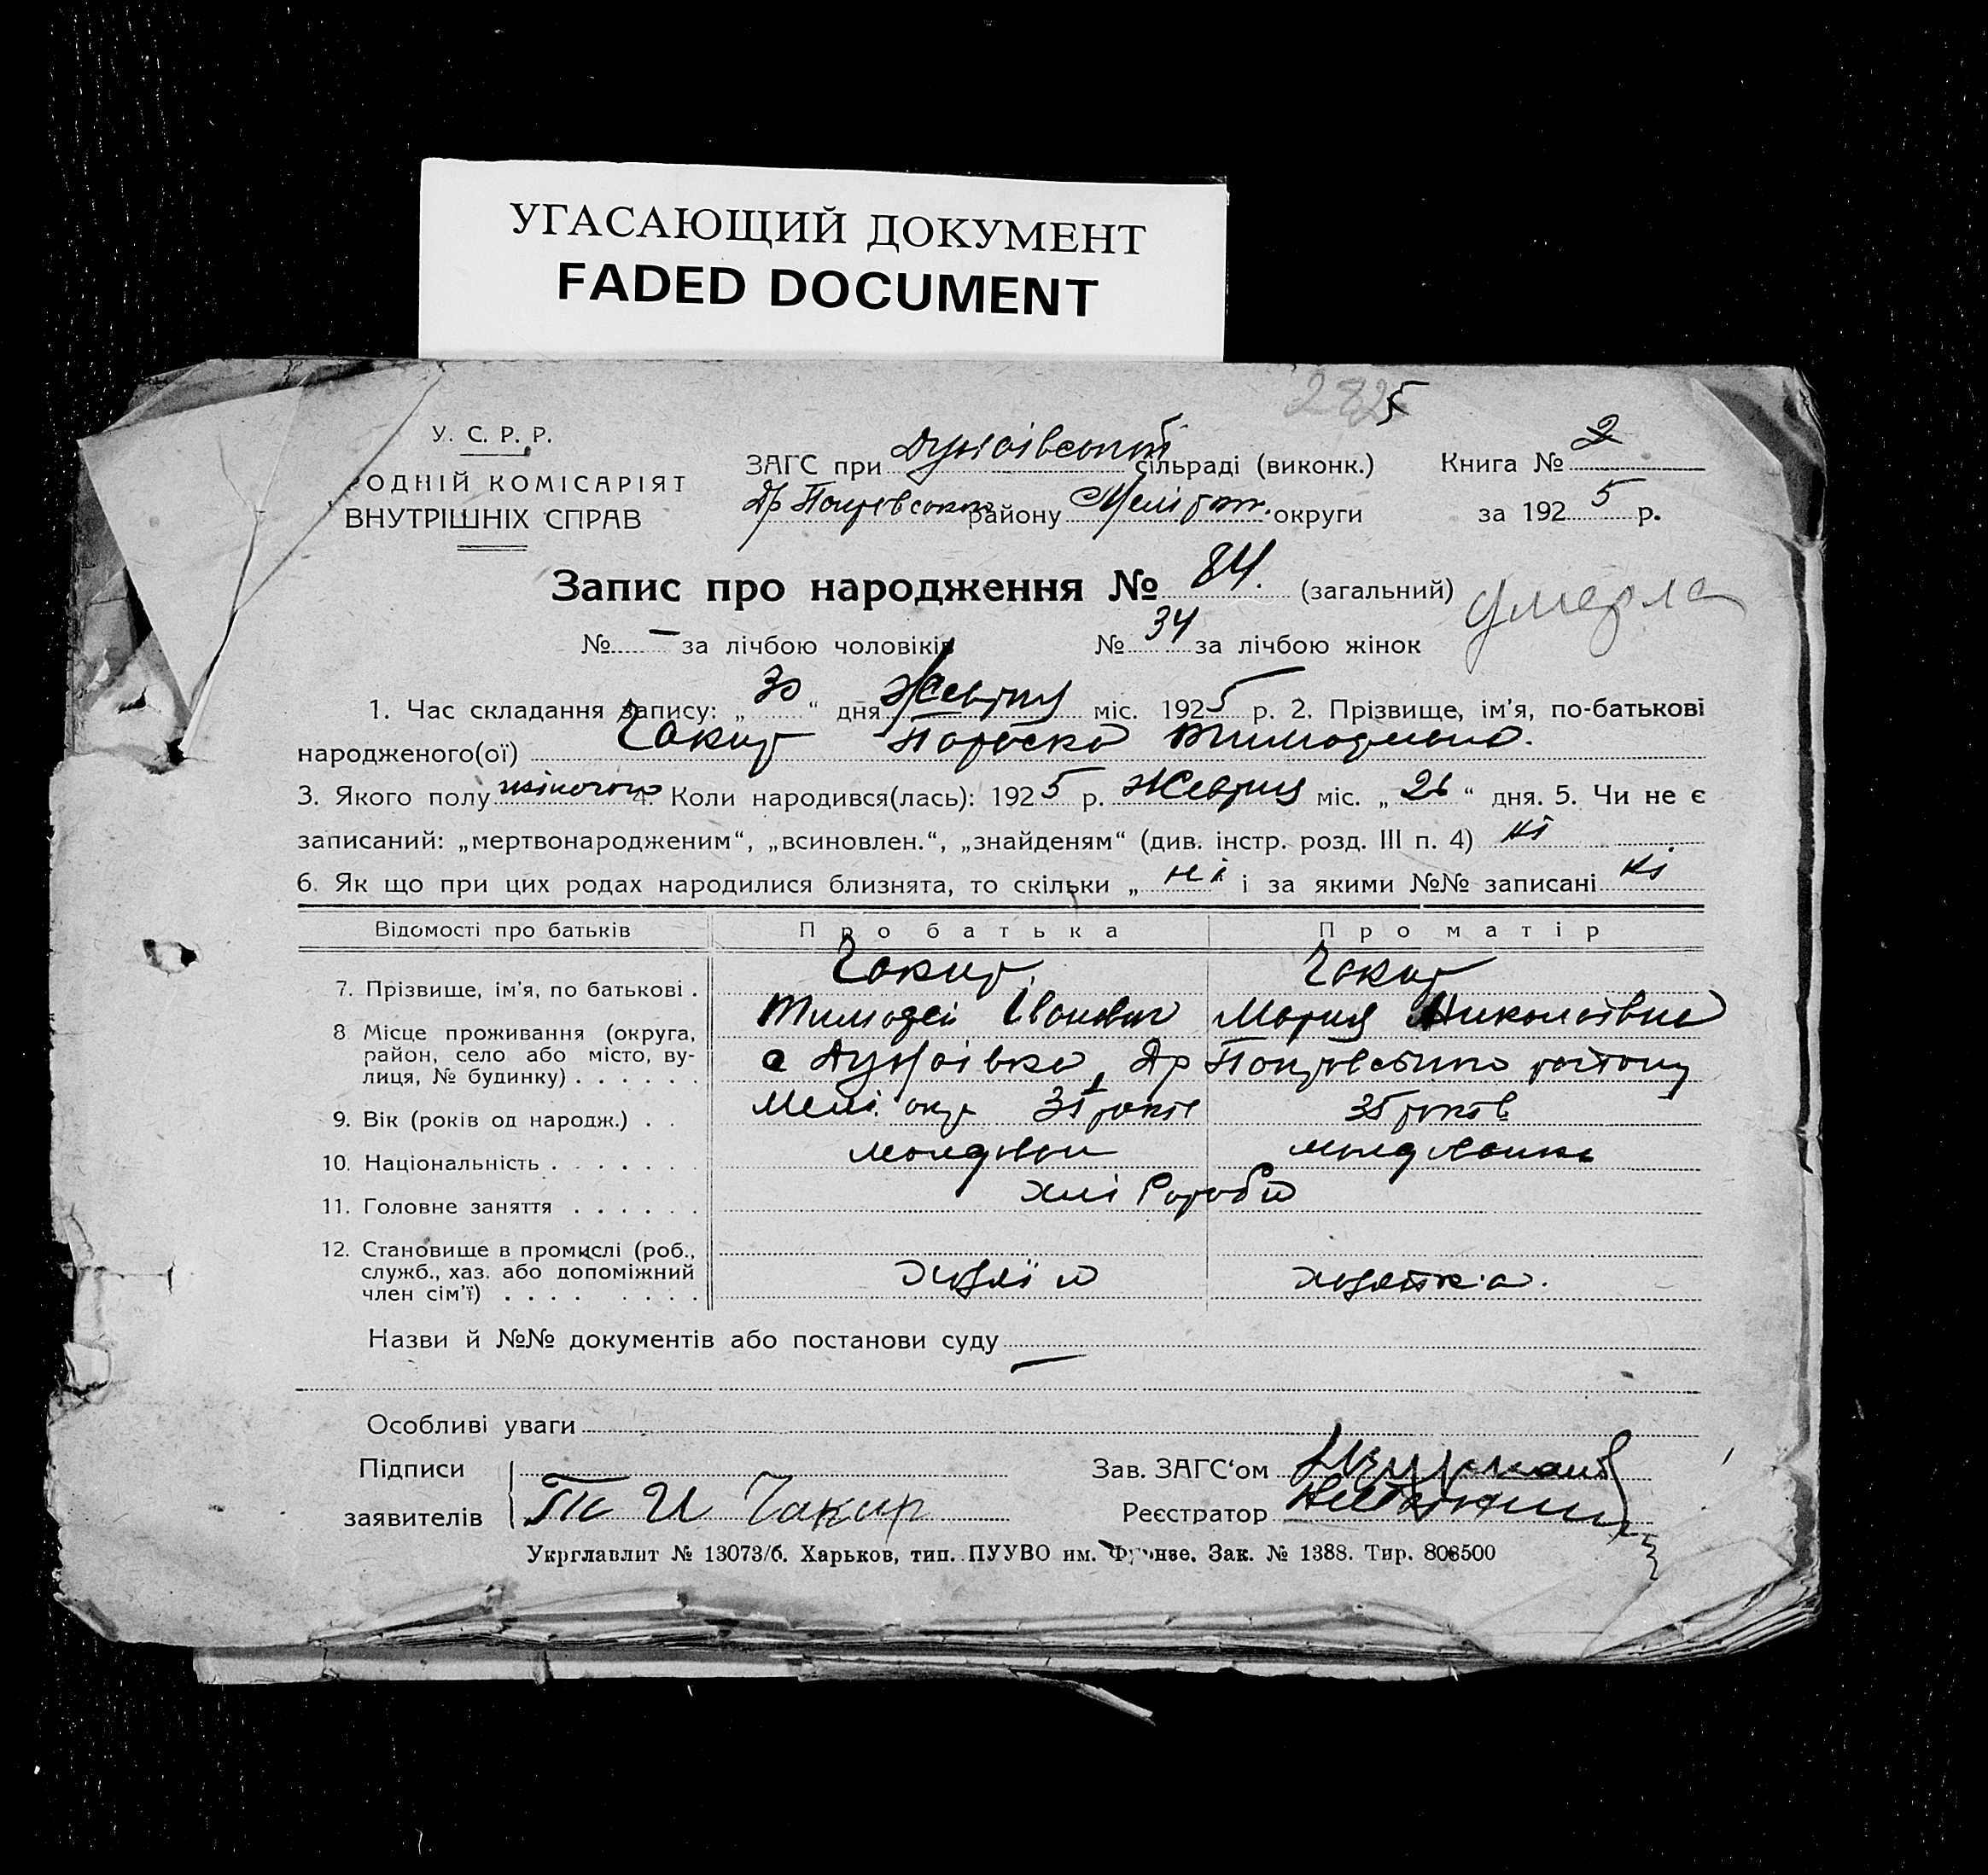 УГАСАЮЩИЙ ДОКУМЕНТ
FADED DOCUMENT
5
У. С. Р. Р.
ОДНІЙ КОМІСАРІЯТ
ВНУТРІШНІХ СПРАВ
ЗАГС при Дунаївській сільраді (виконк.) Книга № 2
району Меліт. округи за 1925 р.
Запис про народження № 84. (загальний) умерла
№ — за лічбою чоловіків № 34 за лічбою жінок
1. Час складання запису: „30“ дня Жевтня міс. 1925 р. 2. Прізвище, ім'я, по-батькові
народженого(ої) Чакир Параска
3. Якого полу жіночого 4. Коли народився(лась): 1925 р. Жевтня міс. „26“ дня. 5. Чи не є
записаний: „мертвонародженим“, „всиновлен.“, „знайденям“ (див. інстр. розд. III п. 4) ні
6. Як що при цих родах народилися близнята, то скільки „ ні і за якими №№ записані ні
Відомості про батьків Про батька Про матір
7. Прізвище, ім'я, по батькові . Чакир Чакир
Тимофей Іванович Мария Николаївна
8 Місце проживання (округа,
район, село або місто, ву-
лиця, № будинку) . . . . . . с Дунаївка, району
9. Вік (років од народж.) . . Меліт. окр 35 років 35 років
10. Національність . . . . . . . молдован молдованка
11. Головне заняття . . . . . . хліборобство
12. Становище в промислі (роб.,
служб., хаз. або допоміжний
член сім'ї) . . . . . . . . хазяїн хазяйка.
Назви й №№ документів або постанови суду —
Особливі уваги
Підписи Зав. ЗАГС'ом
заявителів Т И Чакир Реєстратор
Укрглавлит № 13073/б. Харьков, тип. ПУУВО им. Фрунзе. Зак. № 1388. Тир. 808500